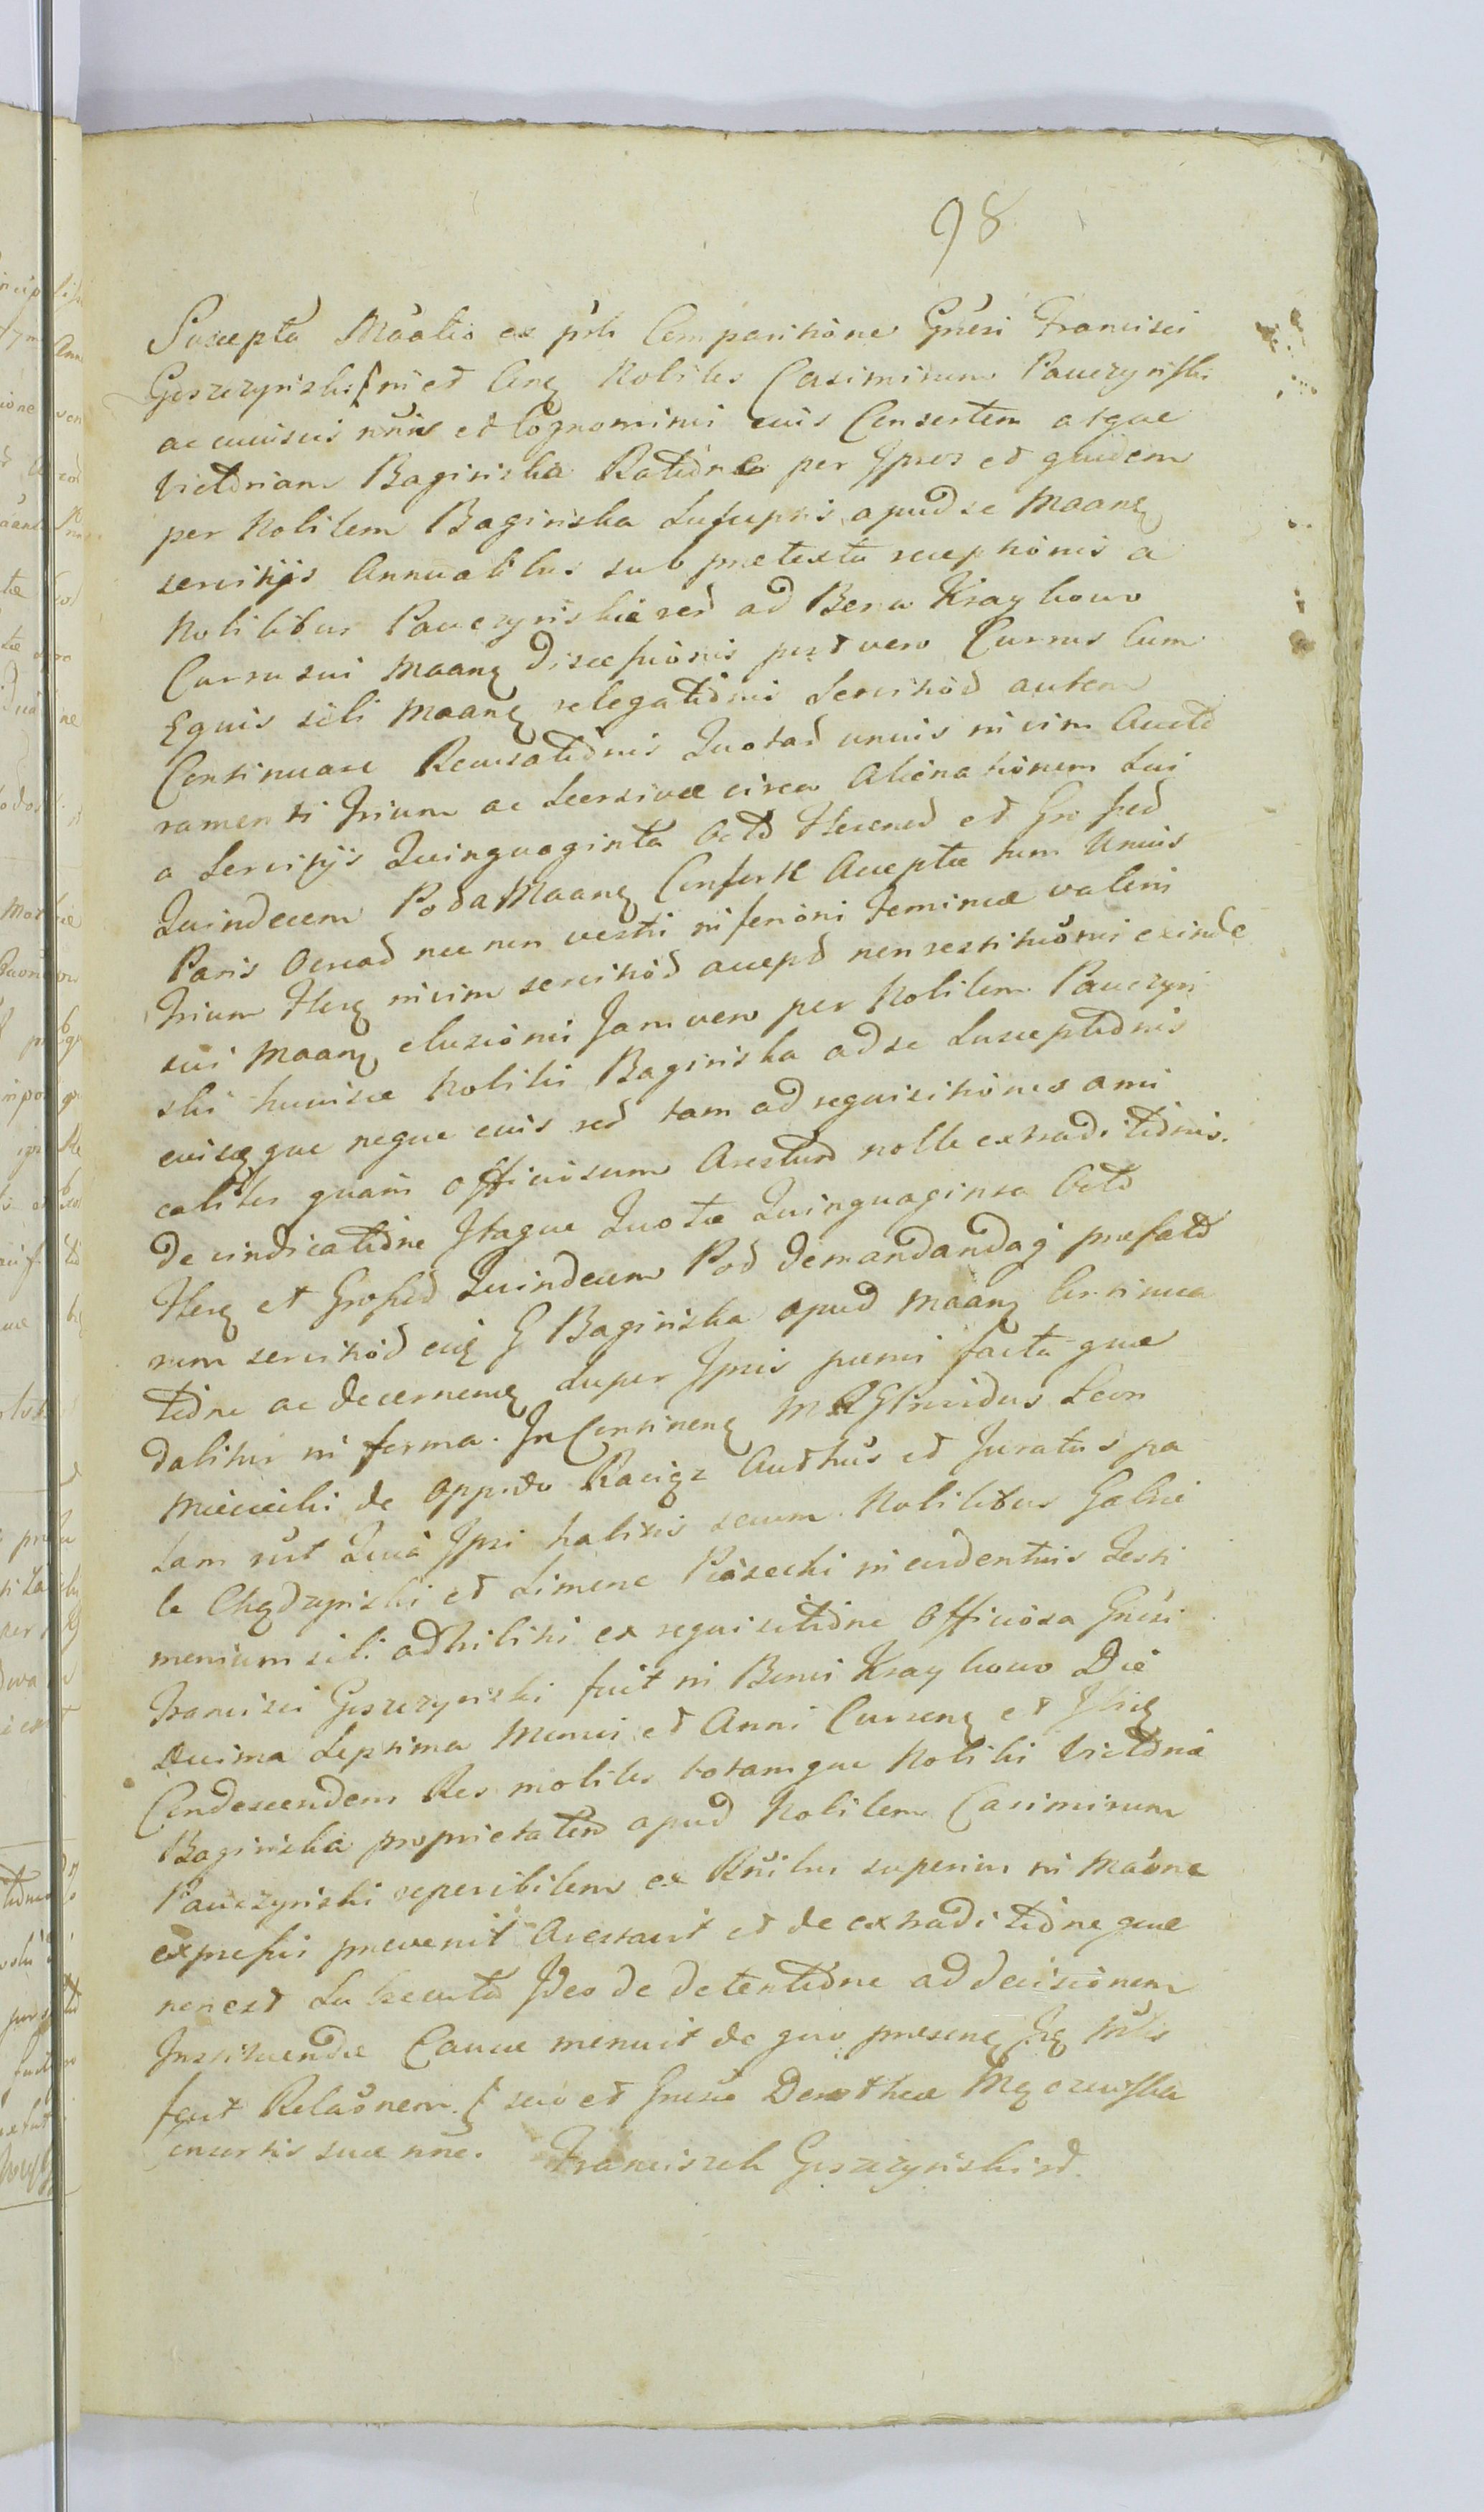 98
Suscepta Maatio ex prli Comparitione Gnesi Francisci
Goszczynski et Nobiles Casimirum Pauczynski
ac cuiusvis nnis et Cognominis eius Consortem atque
Victoriam Baginska Ratione per Ipsos et quidem
per Nobilem Baginska Susceptis apud se Maanq
servitijs Annualibus sub pretextu receptionis a
Nobilibus Pauczynskie sed ad Bena Krajkowo
Curru sui Maanq discessionis post vero Currus Cum
Equis sibi Maanq relegationis Servitiod autem
Continuare Recusationis Quotad unius in vim Aucto
ramenti Trium ac Seorsive circa Alienationem Sui
a Servitijs Quinquaginta Octo flerened et Grossed
Quindecem Poda Maanq Confert Acceptae tum Unius
Paris Ocread nec non vesti inferiori feminae valeri
Trium flenq in vim servitiod accepd non restitutionis exinde
sui Maanq elusionis Jam vero per Nobilem Pauczyn
ski huiusce Nobilis Baginska ad se Susceptionis
eiusqque neque eius red tam ad requisitiones ami
cabiles quam officiosum Arestum nolle extraditionis.
De vindicatione Itaque Quotae Quinquaginta Octo
flenq et Grossed Quindecem Pod demandandaq prefato
rum servitiod eiq G Baginska apud Maanq Continua
tione ac decernenq Super Ipsis poenis facta quae
dabitur in forma. In Continenq Mnstlis Providus Leon
Miecicki de Oppido Raciąz Authus et Juratus pa
lam rect Quia Ipse habitis secum Nobilibus Gabrie
le Chądzynski et Simone Piasecki in evidentius Testi
monium sibi adhibitis ex requisitione Officiosa Gnesi
Francisci Goszczynski fuit in Bonis Krajkowo Die
Decima Septima Mensis et Anni Currenq et Ibiq
Condescendens Res mobiles totamque Nobilis Victoria
Baginska proprietatem apud Nobilem Casimirum
Pauczynski reperibilem ex Rnibus superius in Maone
expressis prevenit Arestavit et de extraditione quae
non est Subsecuta Ideo de detentione ad decisionem
Instituendae Causae monuit de quo presenq Inq Mnstlis
fecit Relaonem. suo et Gnesae Dorotheae
Consortis suae nne. Franciszek Goszczynski